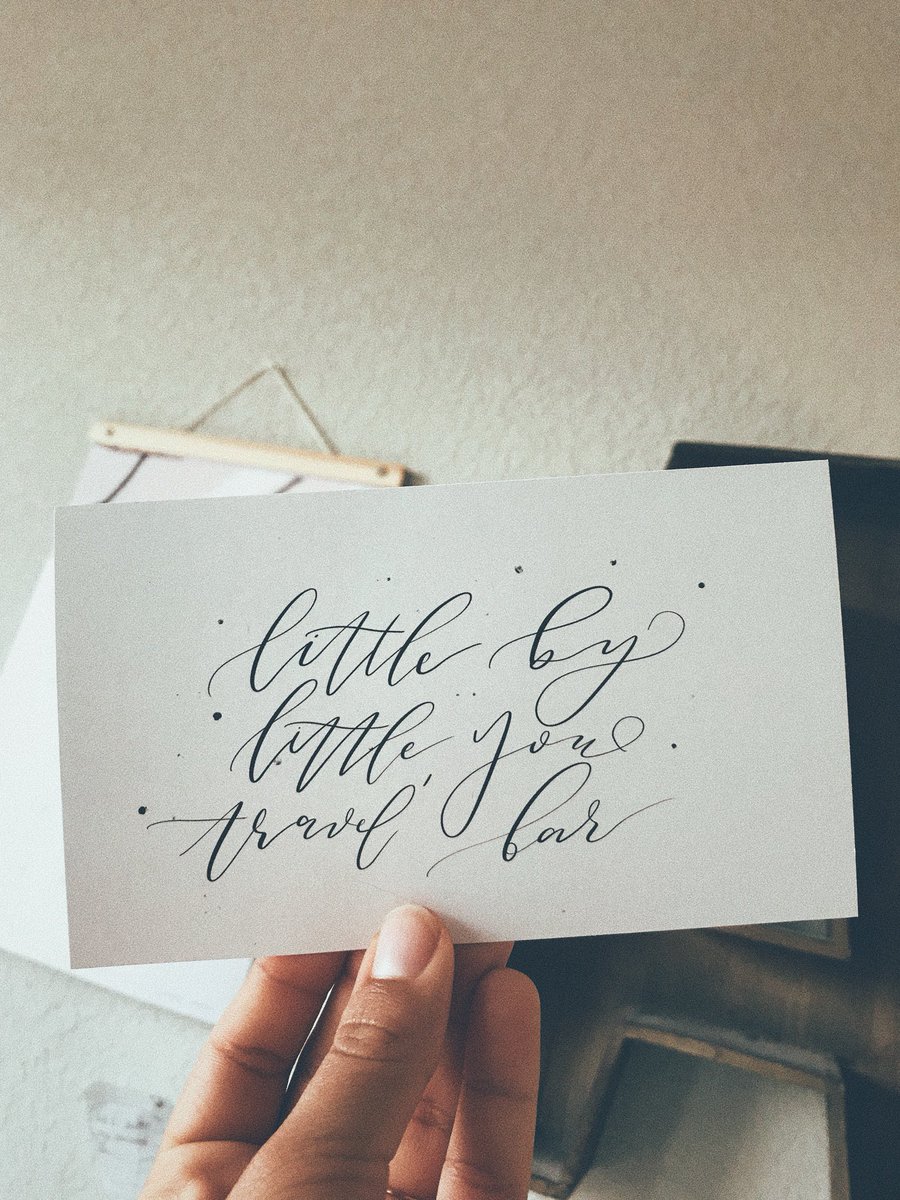 little by
little you
travel' bar